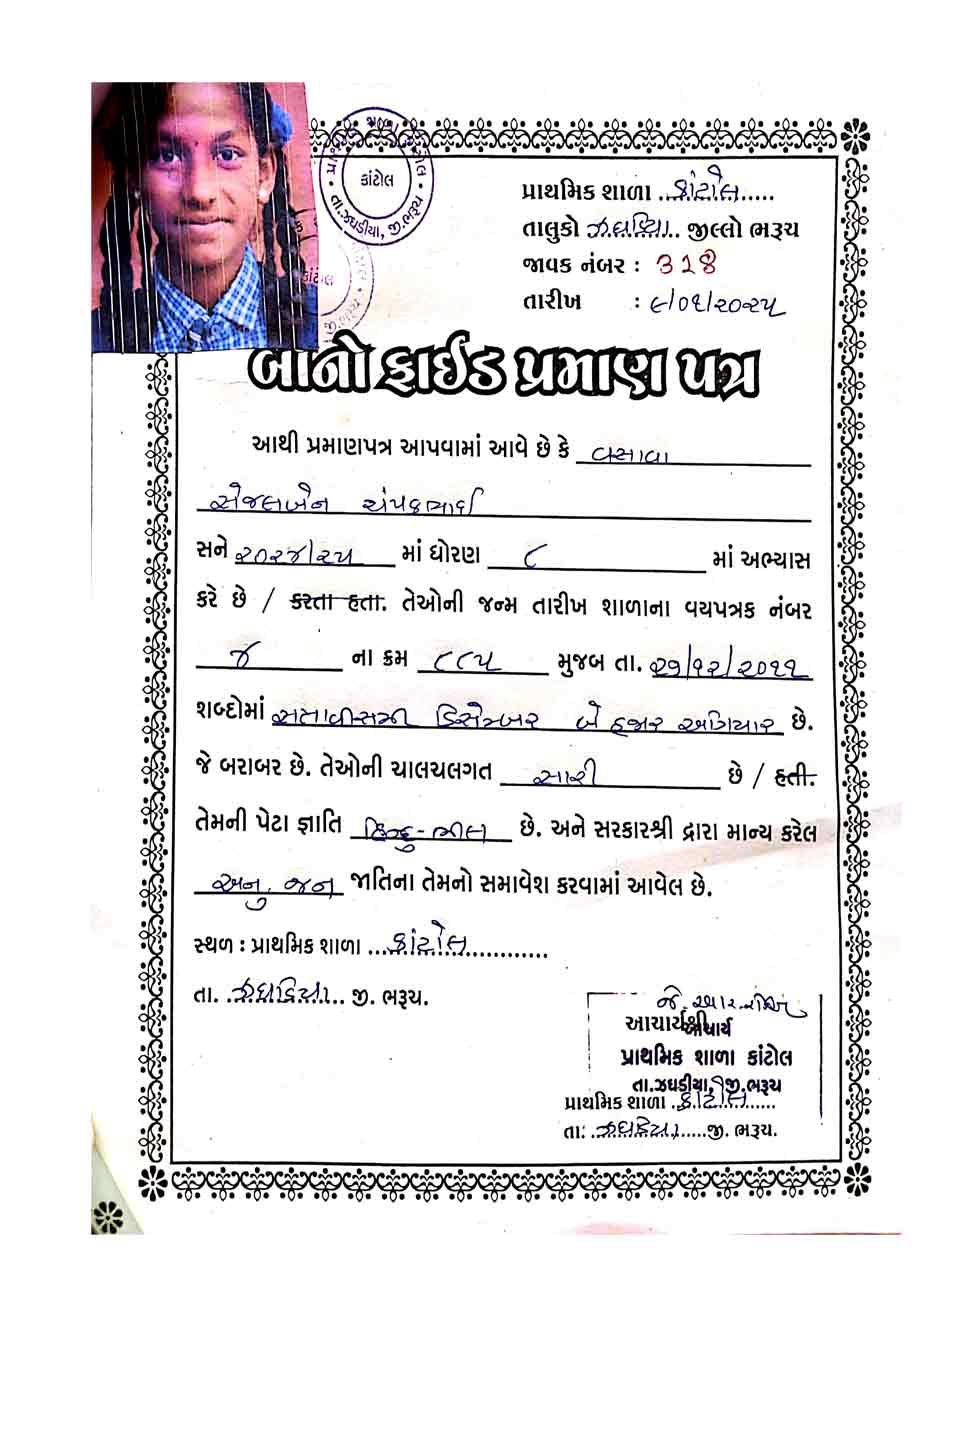 કાંટોલ
તા.ઝઘડીયા, જી.ભરૂચ
પ્રાથમિક શાળા કાંટોલ
તાલુકો ઝઘડિયા જીલ્લો ભરૂચ
જાવક નંબર : ૩૨૪
તારીખ : ૯/૦૧/૨૦૨૫
બોનોફાઈડ પ્રમાણ પત્ર
આથી પ્રમાણપત્ર આપવામાં આવે છે કે વસાવા
સેજલબેન ચંપકભાઈ
સને ૨૦૨૪/૨૫ માં ધોરણ ૮ માં અભ્યાસ
કરે છે / કરતા હતા. તેઓની જન્મ તારીખ શાળાના વયપત્રક નંબર
૪ ના ક્રમ ૮૮૫ મુજબ તા. ૨૭/૧૨/૨૦૧૧
શબ્દોમાં સત્તાવીસમી ડિસેમ્બર બે હજાર અગિયાર છે.
જે બરાબર છે. તેઓની ચાલચલગત સારી છે / હતી.
તેમની પેટા જ્ઞાતિ હિન્દુ-ભીલ છે. અને સરકારશ્રી દ્રારા માન્ય કરેલ
અનુ. જન જાતિના તેમનો સમાવેશ કરવામાં આવેલ છે.
સ્થળ : પ્રાથમિક શાળા કાંટોલ
તા. ઝઘડિયા જી. ભરૂચ.
આચાર્યશ્રી
આચાર્ય
પ્રાથમિક શાળા કાંટોલ
તા.ઝઘડીયા, જી.ભરૂચ
પ્રાથમિક શાળા કાંટોલ
તા: ઝઘડિયા જી. ભરૂચ.